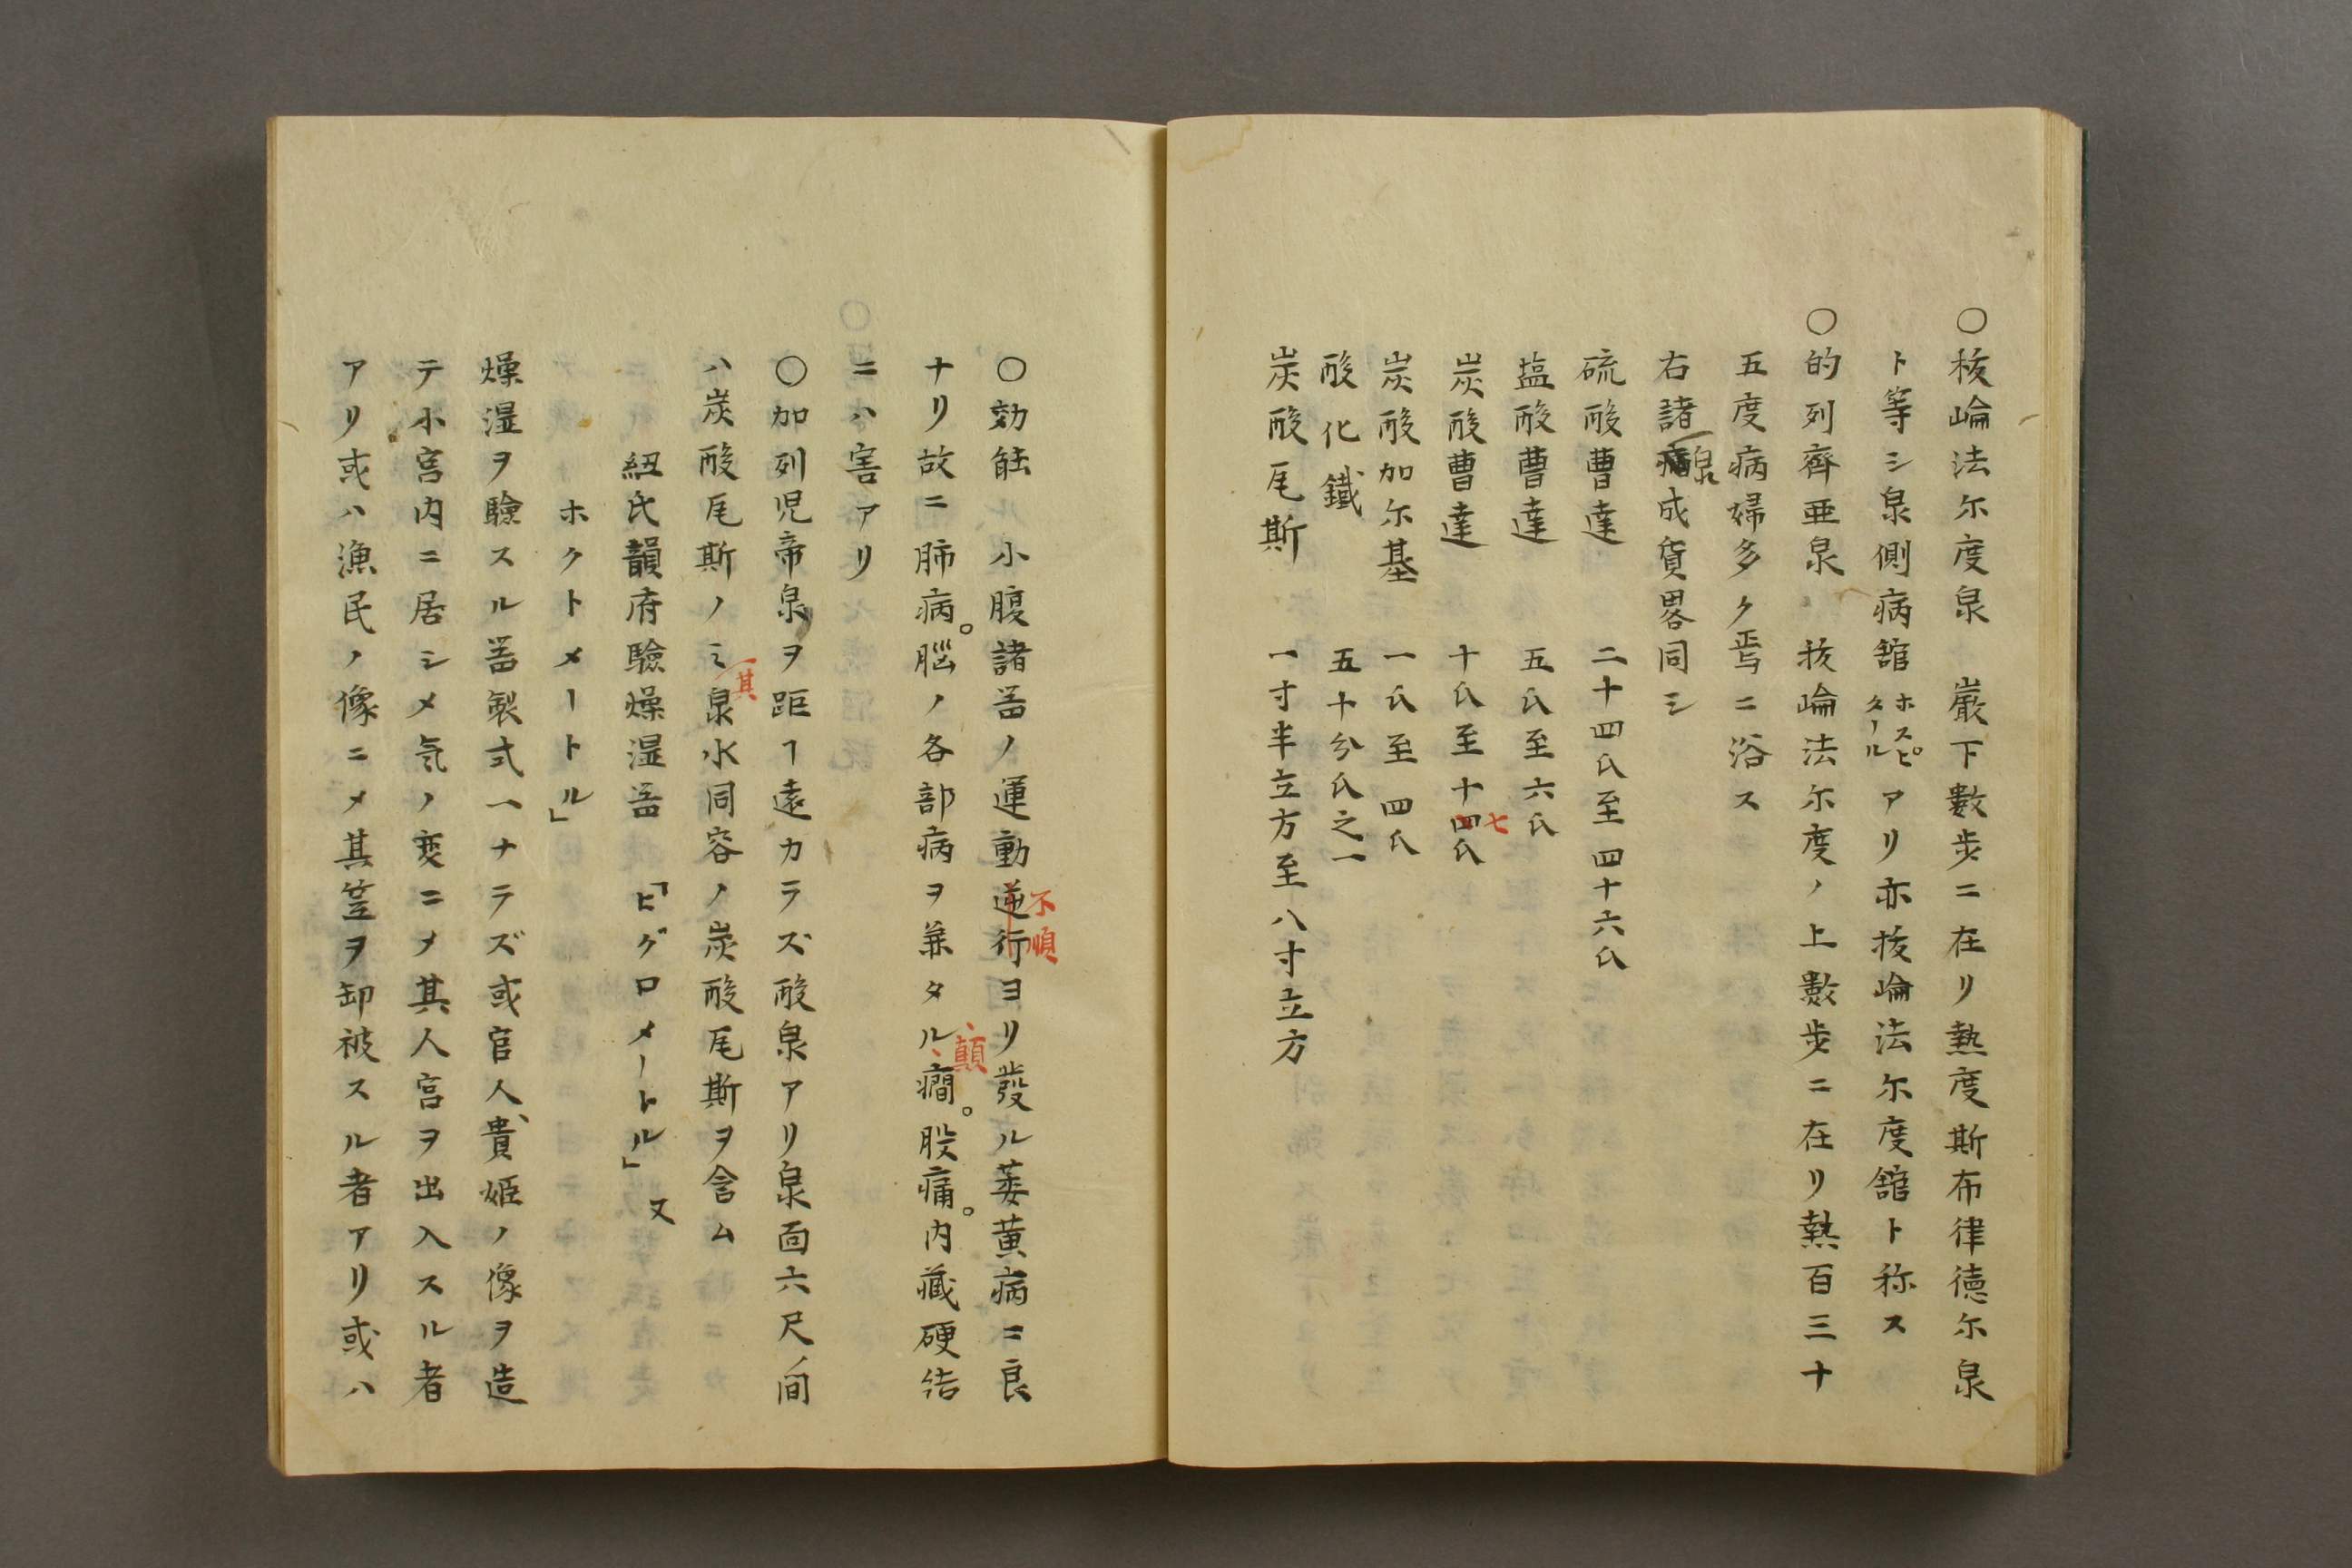 〇抜崘法尓度泉　巌下數歩ニ在リ熱度斯布律德尓泉
ト等シ泉側病舘ホスピタールアリ亦抜崘法尓度舘ト称ス
〇的列齊亜泉　抜崘法尓度ノ上數歩ニ在リ熱百三十
五度病婦多ク焉ニ浴ス
右諸泉成貨畧同シ
硫酸曹達　二十四氏至四十六氏
塩酸曹達　五氏至六氏
炭酸曹達　十氏至十四氏
七
炭酸加尓基　一氏至四氏
酸化鐵　五十分氏之一
炭酸瓦斯　一寸半立方至八寸立方
〇効能　小腹諸器ノ運動逆行ヨリ發ル萎黄病ニ良
不順
ナリ故ニ肺病。腦ノ各部病ヲ兼タル癇。股痛。内藏硬結
顛
ニハ害アリ
〇加列児帝泉ヲ距ヿ遠カラズ酸泉アリ泉面六尺ノ間
ハ炭酸瓦斯ノミ泉水同容ノ炭酸瓦斯ヲ含ム
其
紐氏韻府驗燥湿器　「ヒグロメートル」又
ホクトメートル」
燥湿ヲ驗スル器製式一ナラズ或官人、貴姫ノ像ヲ造
テ小宮内ニ居シメ気ノ変ニメ其人宮ヲ出入スル者
アリ或ハ漁民ノ像ニメ其笠ヲ卸被スル者アリ或ハ